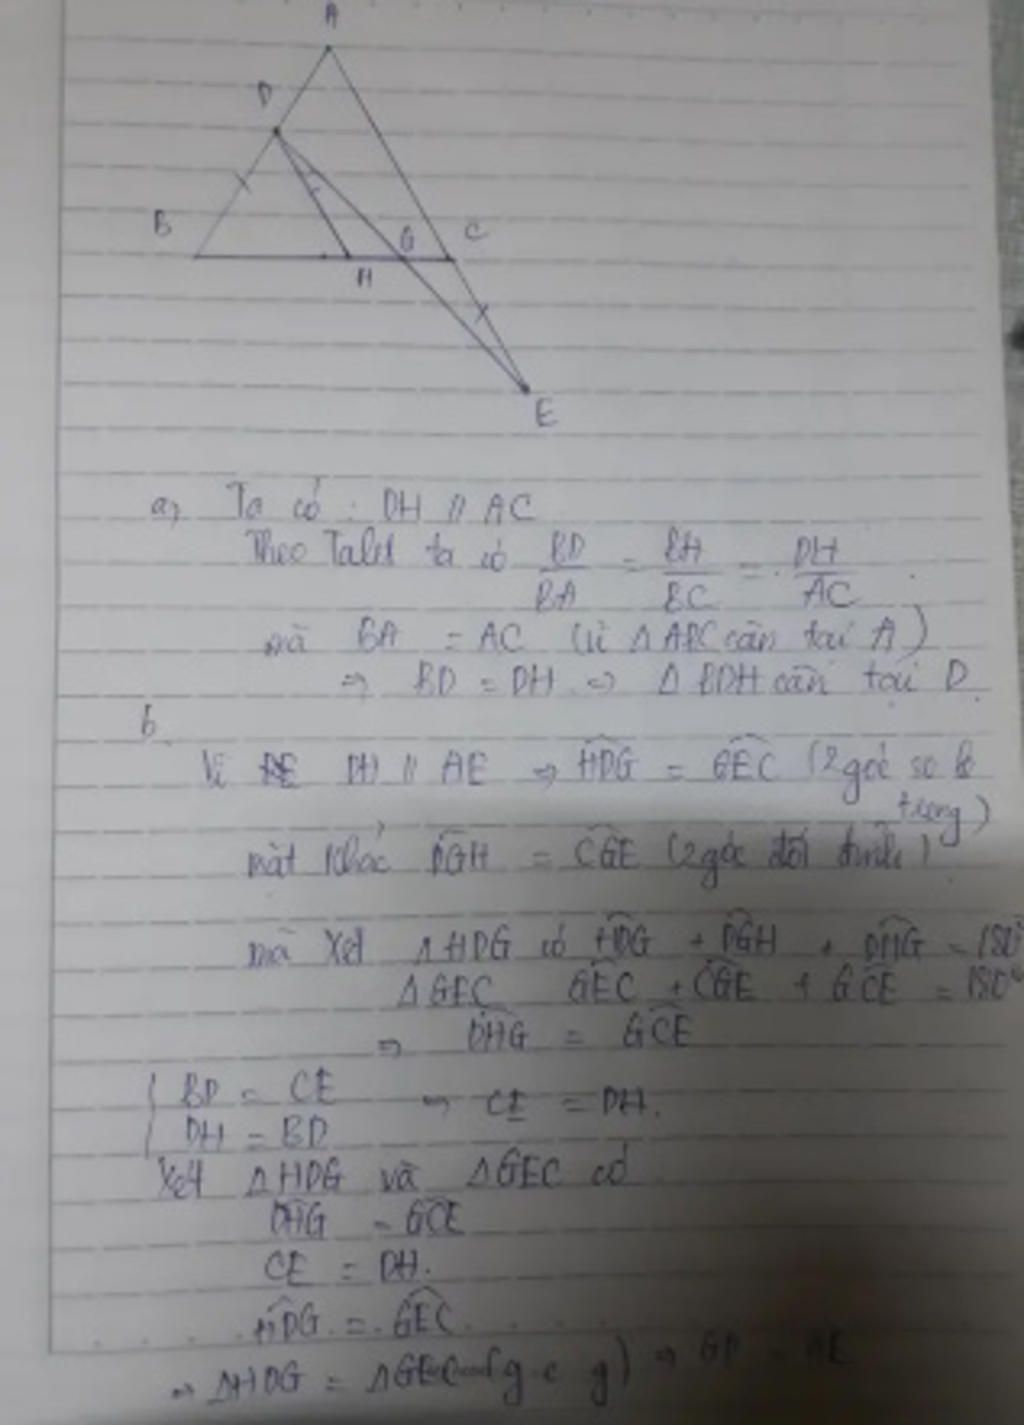 A
D
B
C
G
H
E
a, Ta có : DH // AC
Theo Talet ta có BD/BA = BH/BC = DH/AC
mà BA = AC (vì Δ ABC cân tại A)
⇒ BD = DH ⇒ Δ BDH cân tại D
b
Vì DH // AE ⇒ HDG = GEC (2 góc so le
trong)
mặt khác DGH = CGE (2 góc đối đỉnh)
mà Xét Δ HDG có HDG + DGH + DHG = 180°
Δ GEC GEC + CGE + GCE = 180°
⇒ DHG = GCE
BD = CE ⇒ CE = DH.
DH = BD
Xét Δ HDG và Δ GEC có
DHG = GCE
CE = DH.
HDG = GEC
⇒ ΔHDG = ΔGEC (g c g) ⇒ GD = GE